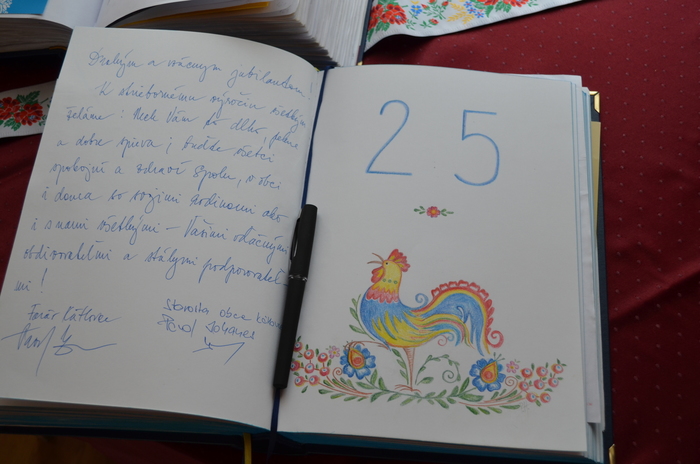 Drahým a vzácnym jubilantom!
K striebornému výročiu všetkým
želáme: Nech Vám to dlho, pekne
a dobre spieva; buďte všetci
spokojní a zdraví spolu, v obci
i doma so svojimi rodinami ako
i s nami všetkými – Vašimi vďačnými
obdivovateľmi a stálymi podporovateľ
mi!
Farár
Starosta obce
Pavol
25